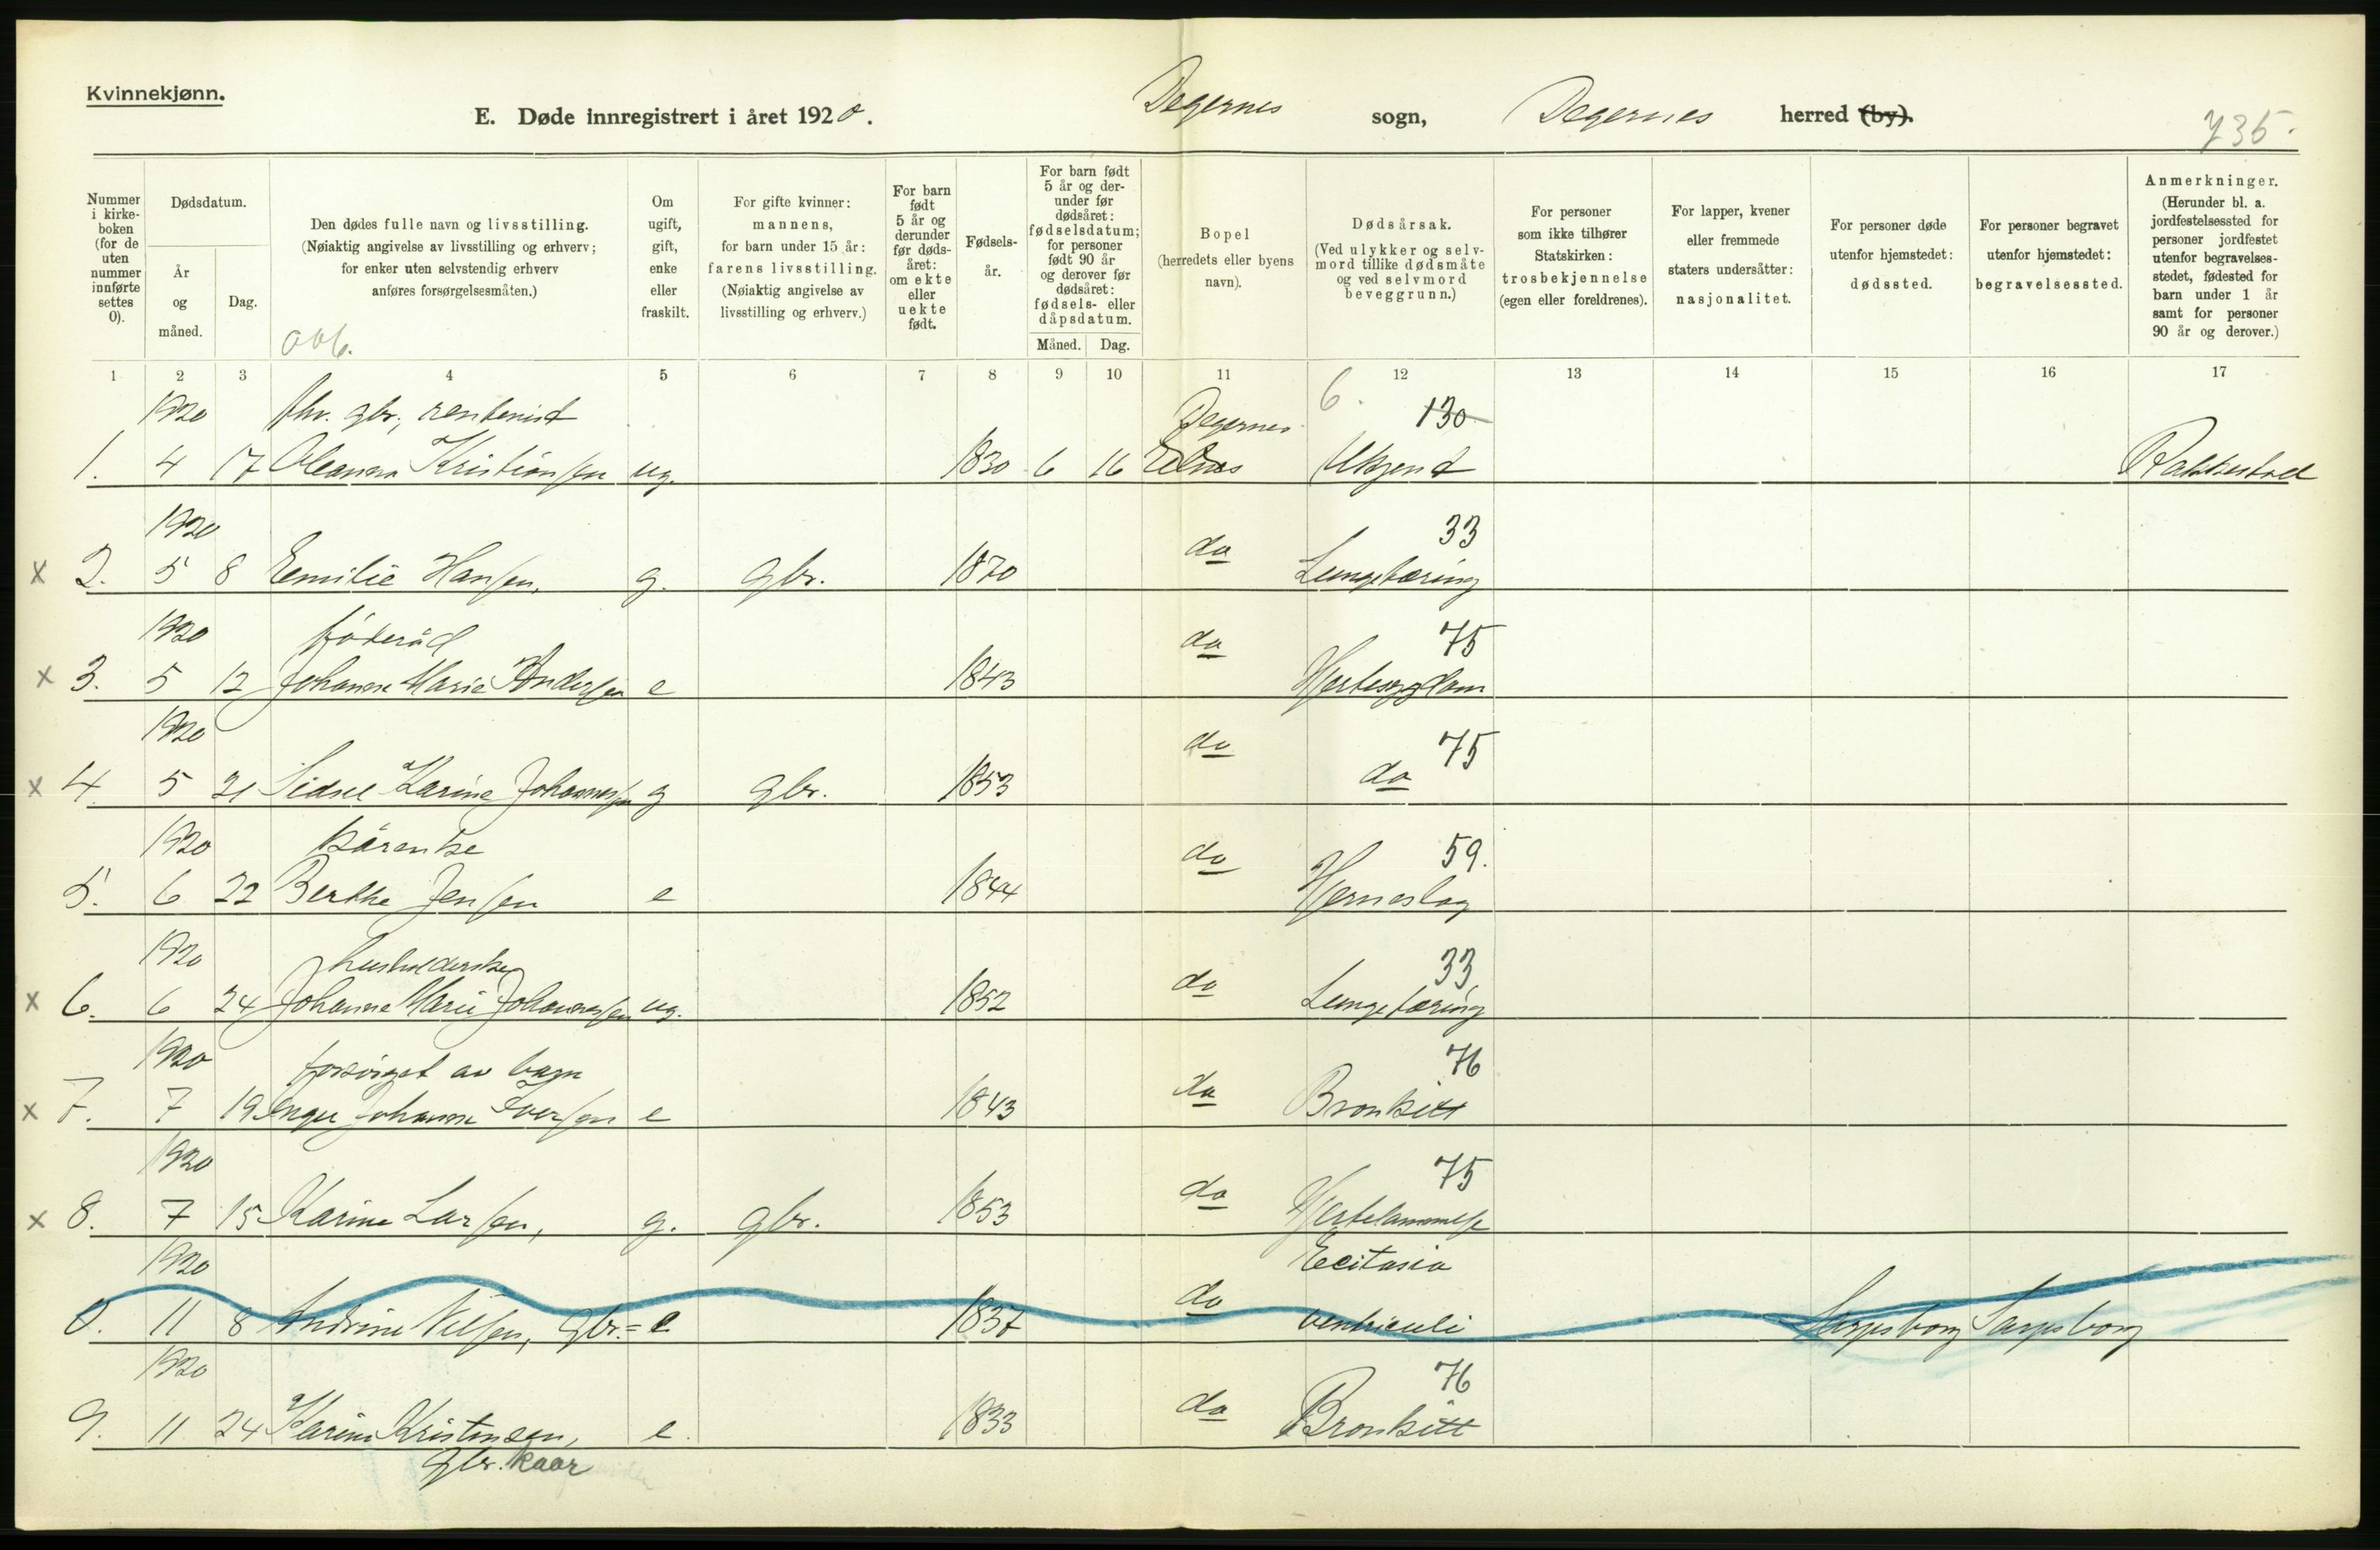 Kvinnekjønn.
E. Døde innregistrert i året 1920. Degernes sogn, Degernes herred (by).
735.
Nummer i kirkeboken (for de uten nummer innførte settes 0).
Dødsdatum.
År og måned.
Dag.
Den dødes fulle navn og livsstilling.
(Nøiaktig angivelse av livsstilling og erhverv;
for enker uten selvstendig erhverv
anføres forsørgelsesmåten.)
Om ugift, gift, enke eller fraskilt.
For gifte kvinner:
mannens,
for barn under 15 år:
farens livsstilling.
(Nøiaktig angivelse av
livsstilling og erhverv.)
For barn født 5 år og derunder før dødsåret: om ekte eller uekte født.
Fødselsår.
For barn født 5 år og derunder før dødsåret: fødselsdatum; for personer født 90 år og derover før dødsåret: fødsels- eller dåpsdatum.
Måned. Dag.
Bopel
(herredets eller byens
navn).
Dødsårsak.
(Ved ulykker og selvmord tillike dødsmåte og ved selvmord beveggrunn.)
For personer
som ikke tilhører
Statskirken:
trosbekjennelse
(egen eller foreldrenes).
For lapper, kvener
eller fremmede
staters undersåtter:
nasjonalitet.
For personer døde
utenfor hjemstedet:
dødssted.
For personer begravet
utenfor hjemstedet:
begravelsessted.
Anmerkninger.
(Herunder bl. a. jordfestelsessted for personer jordfestet utenfor begravelsesstedet, fødested for barn under 1 år samt for personer 90 år og derover.)
1 2 3 4 5 6 7 8 9 10 11 12 13 14 15 16 17
1920 fhv. gbr., rentenist Degernes 6. 130
1. 4 17 Oleanna Kristiansen ug. 1830 6 16 Ukjend Rakkestad
1920 do 33
x 2. 5 8 Emilie Hansen, g. gbr. 1870 Lungetæring
1920 föderåd do 75
x 3. 5 12 Johanne Marie Andersen e 1843 Hjertesygdom
1920 do 75
x 4. 5 21 Sidsel Karine Johannessen g gbr. 1853 do
1920 kårenke do 59.
5. 6 22 Berthe Jensen e 1844 Hjerneslag
1920 husholderske do 33
x 6. 6 24 Johanne Marie Johannessen ug. 1852 Lungetæring
1920 forsörget av barn do 76
x 7. 7 19 Inger Johanne Iversen e 1843 Bronkitt
1920 do 75
x 8. 7 15 Karine Larsen, g. gbr. 1853 Hjertelammelse
1920 do
0. 11 8 Andrine Nilsen, gbr. = e 1837 ventriculi Sarpsborg Sarpsborg
1920 do 76
9. 11 24 Karine Kristensen, e. 1833 Bronkitt
gbr. kaar